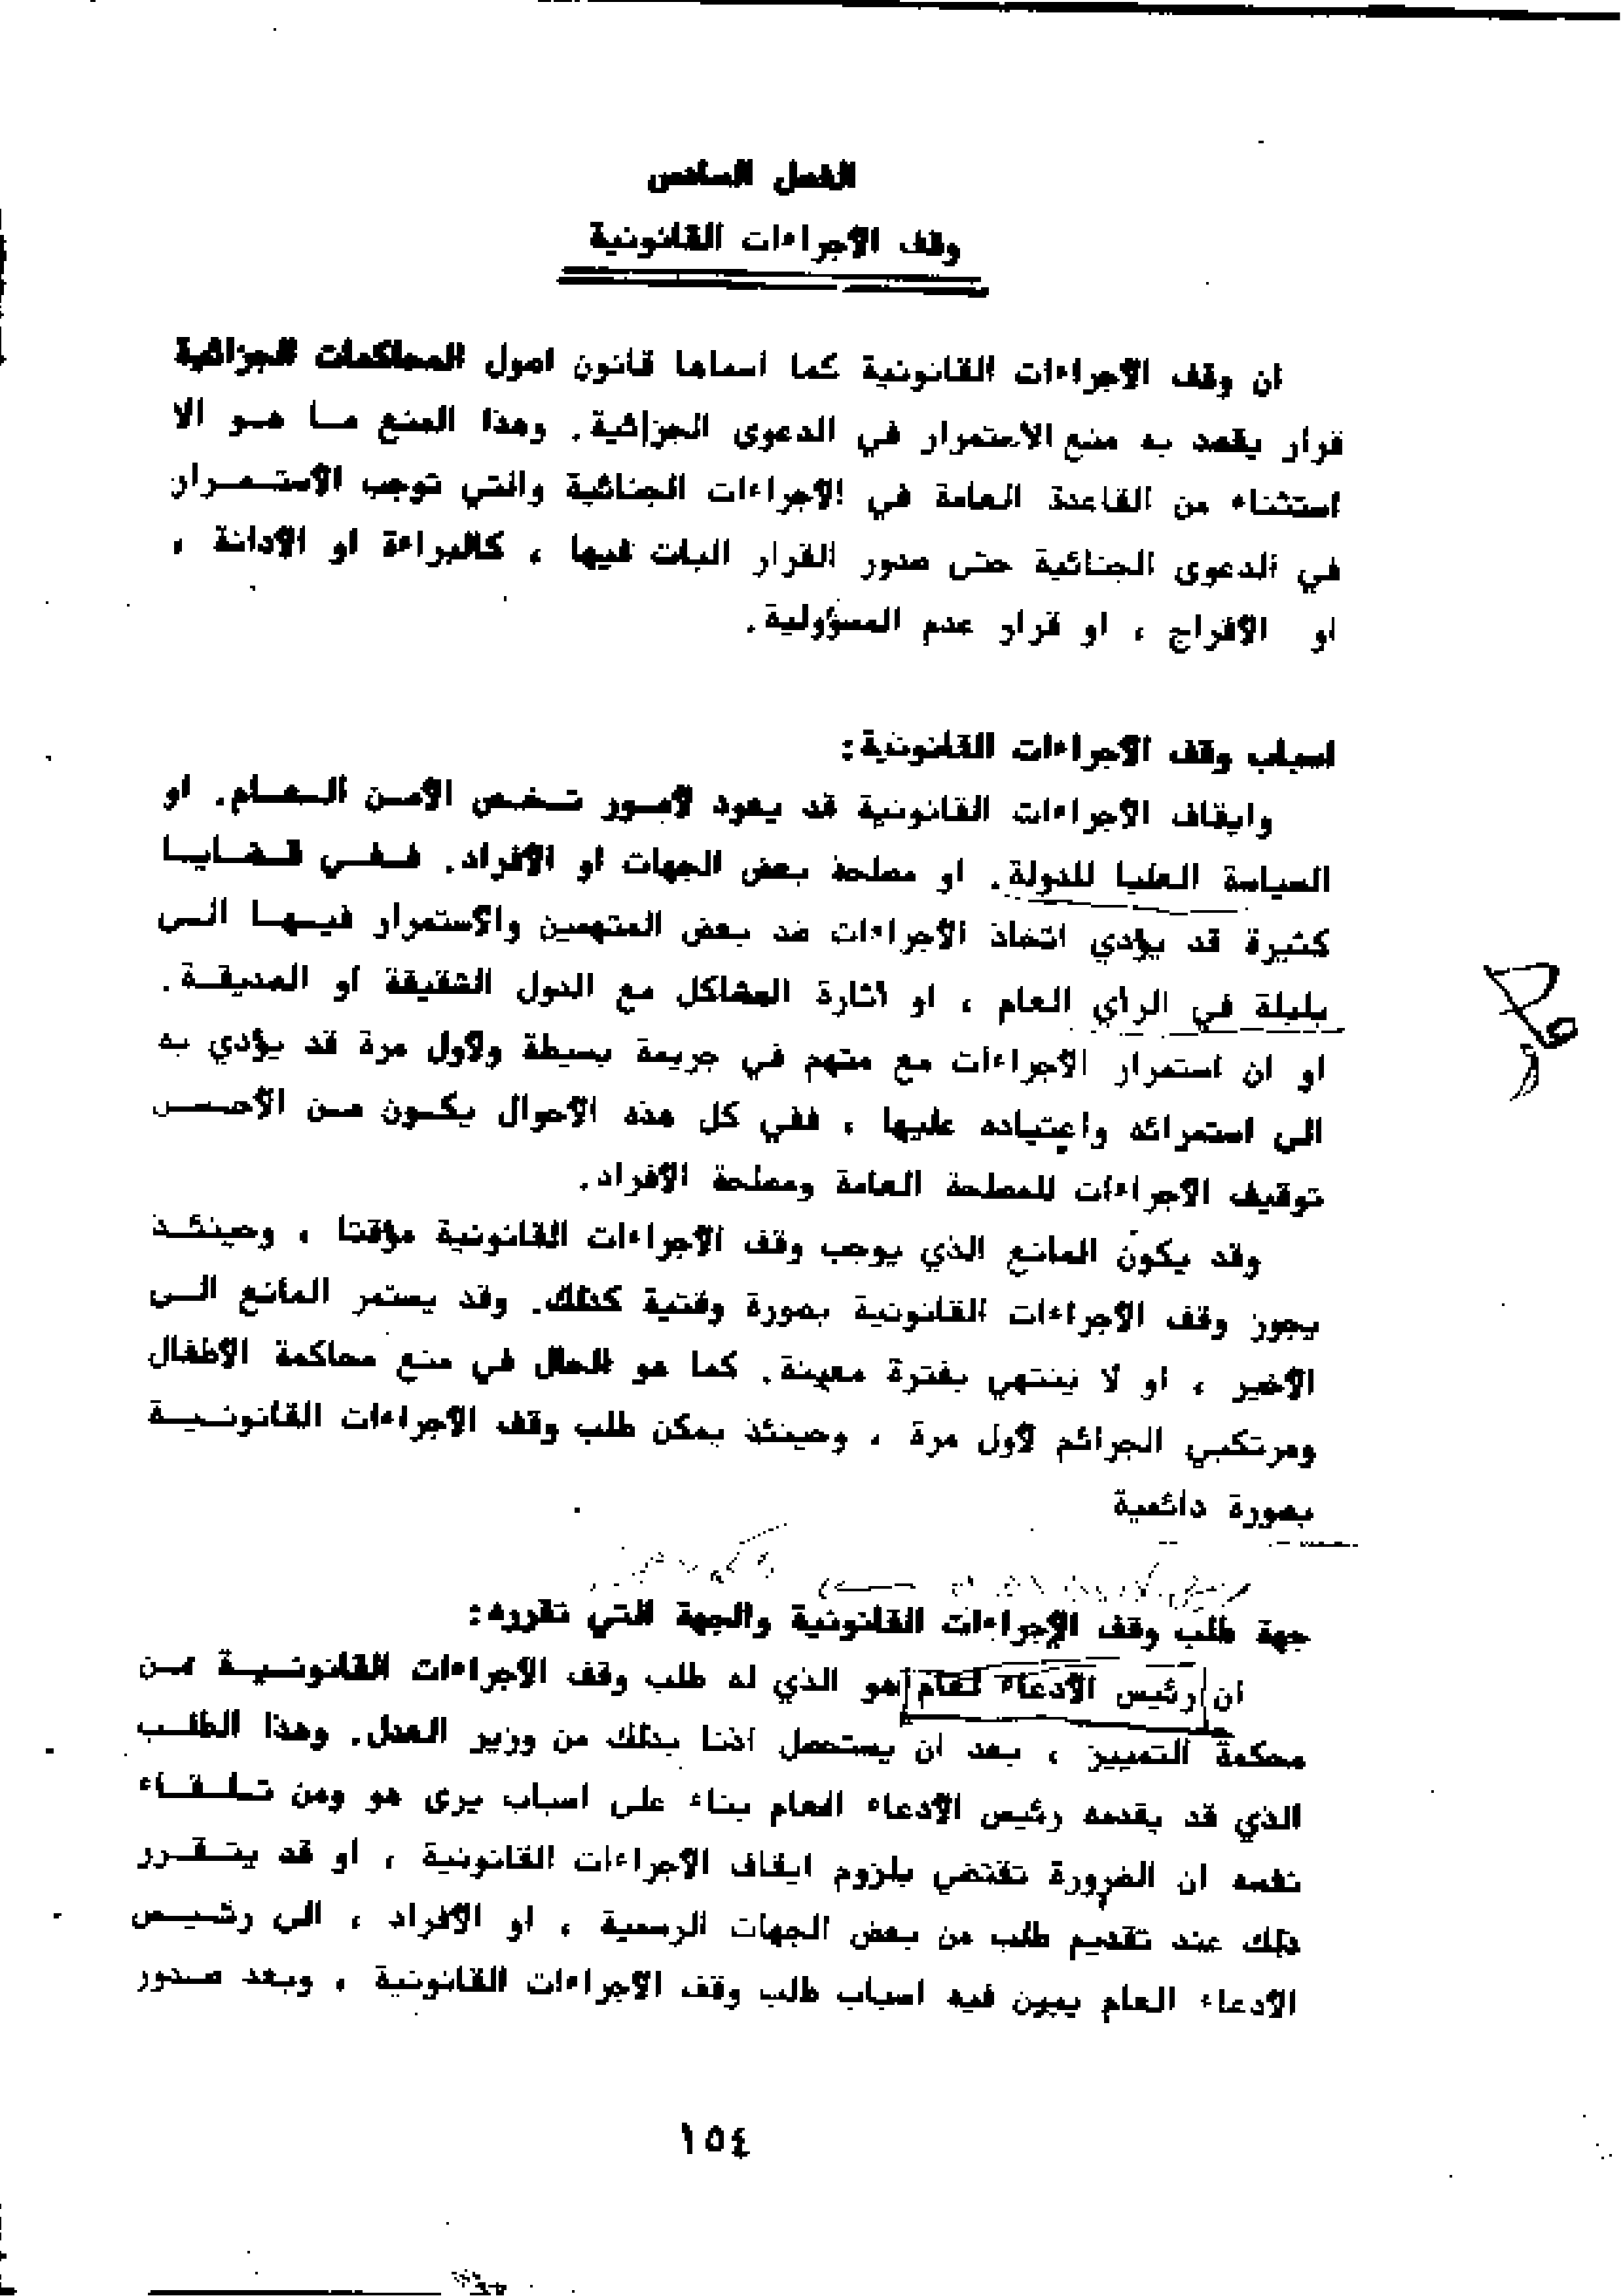 الفصل السادس
وقف الاجراءات القانونية
ان وقف الاجراءات القانونية كما اسماها قانون اصول المحاكمات الجزائية
قرار يقصد به منع الاستمرار في الدعوى الجزائية. وهذا المنع ما هو الا
استثناء من القاعدة العامة في الاجراءات الجنائية والتي توجب الاستمرار
في الدعوى الجنائية حتى صدور القرار البات فيها ، كالبراءة او الادانة ،
او الافراج ، او قرار عدم المسؤولية.
اسباب وقف الاجراءات القانونية:
وايقاف الاجراءات القانونية قد يعود لأمور تخص الأمن العام. او
السياسة العليا للدولة. او مصلحة بعض الجهات او الأفراد. ففي قضايا
كثيرة قد يؤدي اتخاذ الاجراءات ضد بعض المتهمين والاستمرار فيها الى
بلبلة في الرأي العام ، او اثارة المشاكل مع الدول الشقيقة او الصديقة.
او ان استمرار الاجراءات مع متهم في جريمة بسيطة ولأول مرة قد يؤدي به
الى استمرائه واعتياده عليها ، ففي كل هذه الاحوال يكون من الأحسن
توقيف الاجراءات للمصلحة العامة ومصلحة الأفراد.
وقد يكون المانع الذي يوجب وقف الاجراءات القانونية مؤقتا ، وحينئذ
يجوز وقف الاجراءات القانونية بصورة وقتية كذلك. وقد يستمر المانع الى
الأخير ، او لا ينتهي بفترة معينة. كما هو الحال في منع محاكمة الاطفال
ومرتكبي الجرائم لأول مرة ، وحينئذ يمكن طلب وقف الاجراءات القانونية
بصورة دائمية
جهة طلب وقف الاجراءات القانونية والجهة التي تقرره:
ان رئيس الادعاء العام هو الذي له طلب وقف الاجراءات القانونية من
محكمة التمييز ، بعد ان يستحصل اذنا بذلك من وزير العدل. وهذا الطلب
الذي قد يقدمه رئيس الادعاء العام بناء على اسباب يرى هو ومن تلقاء
نفسه ان الضرورة تقتضي بلزوم ايقاف الاجراءات القانونية ، او قد يتقرر
ذلك عند تقديم طلب من بعض الجهات الرسمية ، او الأفراد ، الى رئيس
الادعاء العام يبين فيه اسباب طلب وقف الاجراءات القانونية ، وبعد صدور
١٥٤